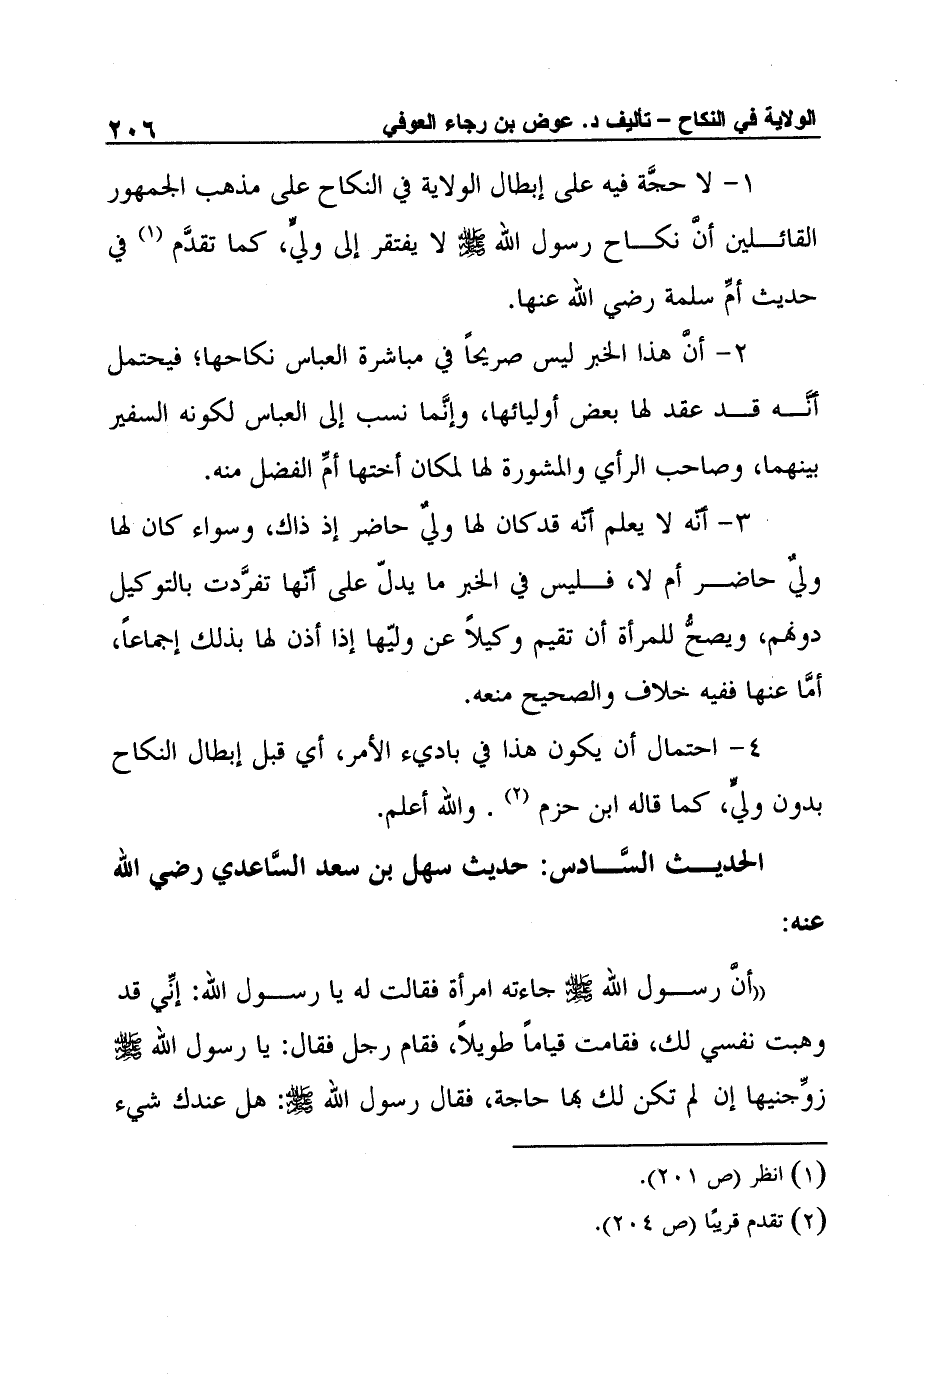 الولاية في النكاح – تأليف د. عوض بن رجاء العوفي ٢٠٦
١- لا حجَّة فيه على إبطال الولاية في النكاح على مذهب الجمهور
القائـــلين أنَّ نكـــاح رسول الله ﷺ لا يفتقر إلى وليٍّ، كما تقدَّم (١) في
حديث أمِّ سلمة رضي الله عنها.
٢- أنَّ هذا الخبر ليس صريحاً في مباشرة العباس نكاحها؛ فيحتمل
أنَّـــه قـــد عقد لها بعض أوليائها، وإنَّما نسب إلى العباس لكونه السفير
بينهما، وصاحب الرأي والمشورة لها لمكان أختها أمِّ الفضل منه.
٣- أنّه لا يعلم أنّه قدكان لها وليٌّ حاضر إذ ذاك، وسواء كان لها
وليٌّ حاضـــر أم لا، فـــليس في الخبر ما يدلّ على أنّها تفرَّدت بالتوكيل
دونهم، ويصحُّ للمرأة أن تقيم وكيلاً عن وليّها إذا أذن لها بذلك إجماعاً،
أمَّا عنها ففيه خلاف والصحيح منعه.
٤- احتمال أن يكون هذا في باديء الأمر، أي قبل إبطال النكاح
بدون وليٍّ، كما قاله ابن حزم (٢) . والله أعلم.
الحديـــث السَّـــادس: حديث سهل بن سعد السَّاعدي رضي الله
عنه:
((أنَّ رســـول الله ﷺ جاءته امرأة فقالت له يا رســـول الله: إنِّي قد
وهبت نفسي لك، فقامت قياماً طويلاً، فقام رجل فقال: يا رسول الله ﷺ
زوِّجنيها إن لم تكن لك بها حاجة، فقال رسول الله ﷺ: هل عندك شيء
(١) انظر (ص ٢٠١).
(٢) تقدم قريبًا (ص ٢٠٤).